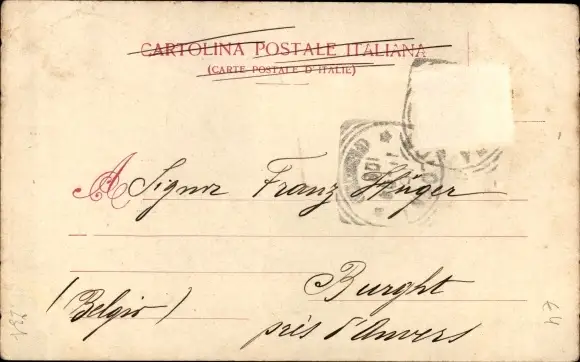 CARTOLINA POSTALE ITALIANA
(CARTE POSTALE D'ITALIE)
A Signor Franz Hüger
Burght
(Belgio)
près d'Anvers